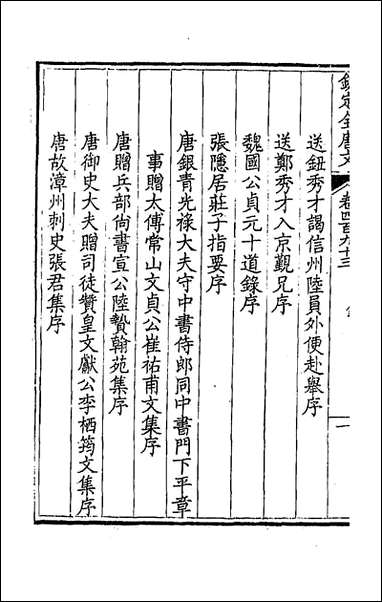 欽定全唐文 卷四百九十三 一
送鈕秀才謁信州陸員外便赴舉序
送鄭秀才入京覲兄序
魏國公貞元十道錄序
張隱居莊子指要序
唐銀青光祿大夫守中書侍郎同中書門下平章
事贈太傅常山文貞公崔祐甫文集序
唐贈兵部尚書宣公陸贄翰苑集序
唐御史大夫贈司徒贊皇文獻公李栖筠文集序
唐故漳州刺史張君集序